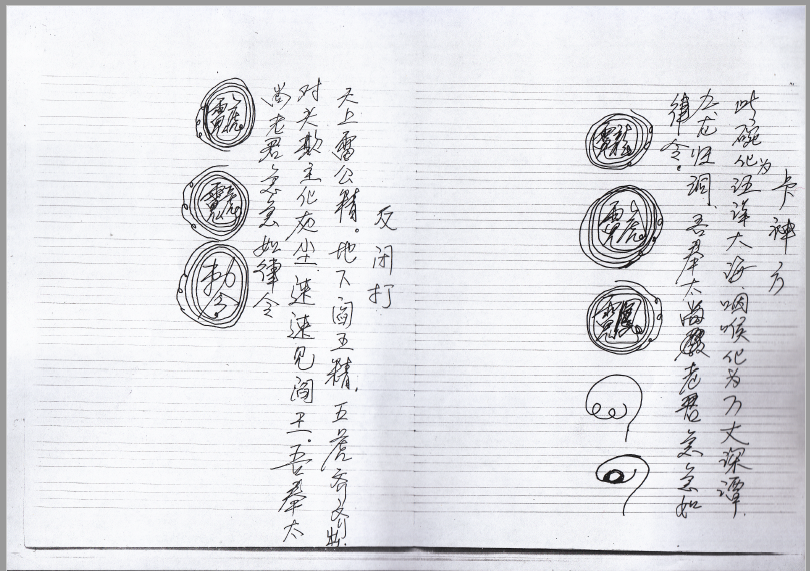 卡神方
此碗化为汪洋大海咽喉化为万丈深谭.
九龙归洞、吾奉太尚老君急急如
律令.
反闭打
天上雷公精。地下阎王精.五虎齐
对夫欺主化灰尘.速速见阎王.吾奉太
尚老君急急如律令
勅令